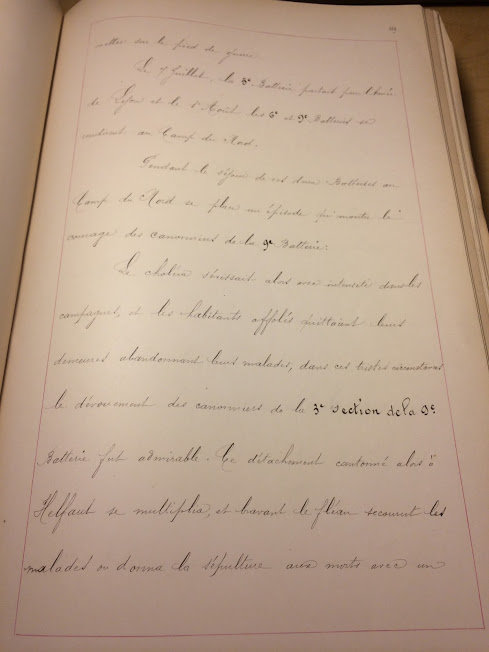 mettre sur le pied de guerre.
Le 7 Juillet la 3e Batterie partait pour l'Armée
de Lyon et le 1er Août les 6e et 9e Batteries se
rendirent au Camp du Nord.
Pendant le séjour de ces deux Batteries au
Camp du Nord se place un épisode qui montre le
courage des canonniers de la 9e Batterie:
Le choléra sévissait alors avec intensité dans les
campagnes, et les habitants affolés quittaient leurs
demeures abandonnant leurs malades, dans ces tristes circonstances
le dévouement des canonniers de la 3e Section de la 9e
Batterie fut admirable. Ce détachement cantonné alors à
Helfaut se multiplia, et bravant le fléau secourut les
malades ou donna la sépulture aux morts avec un